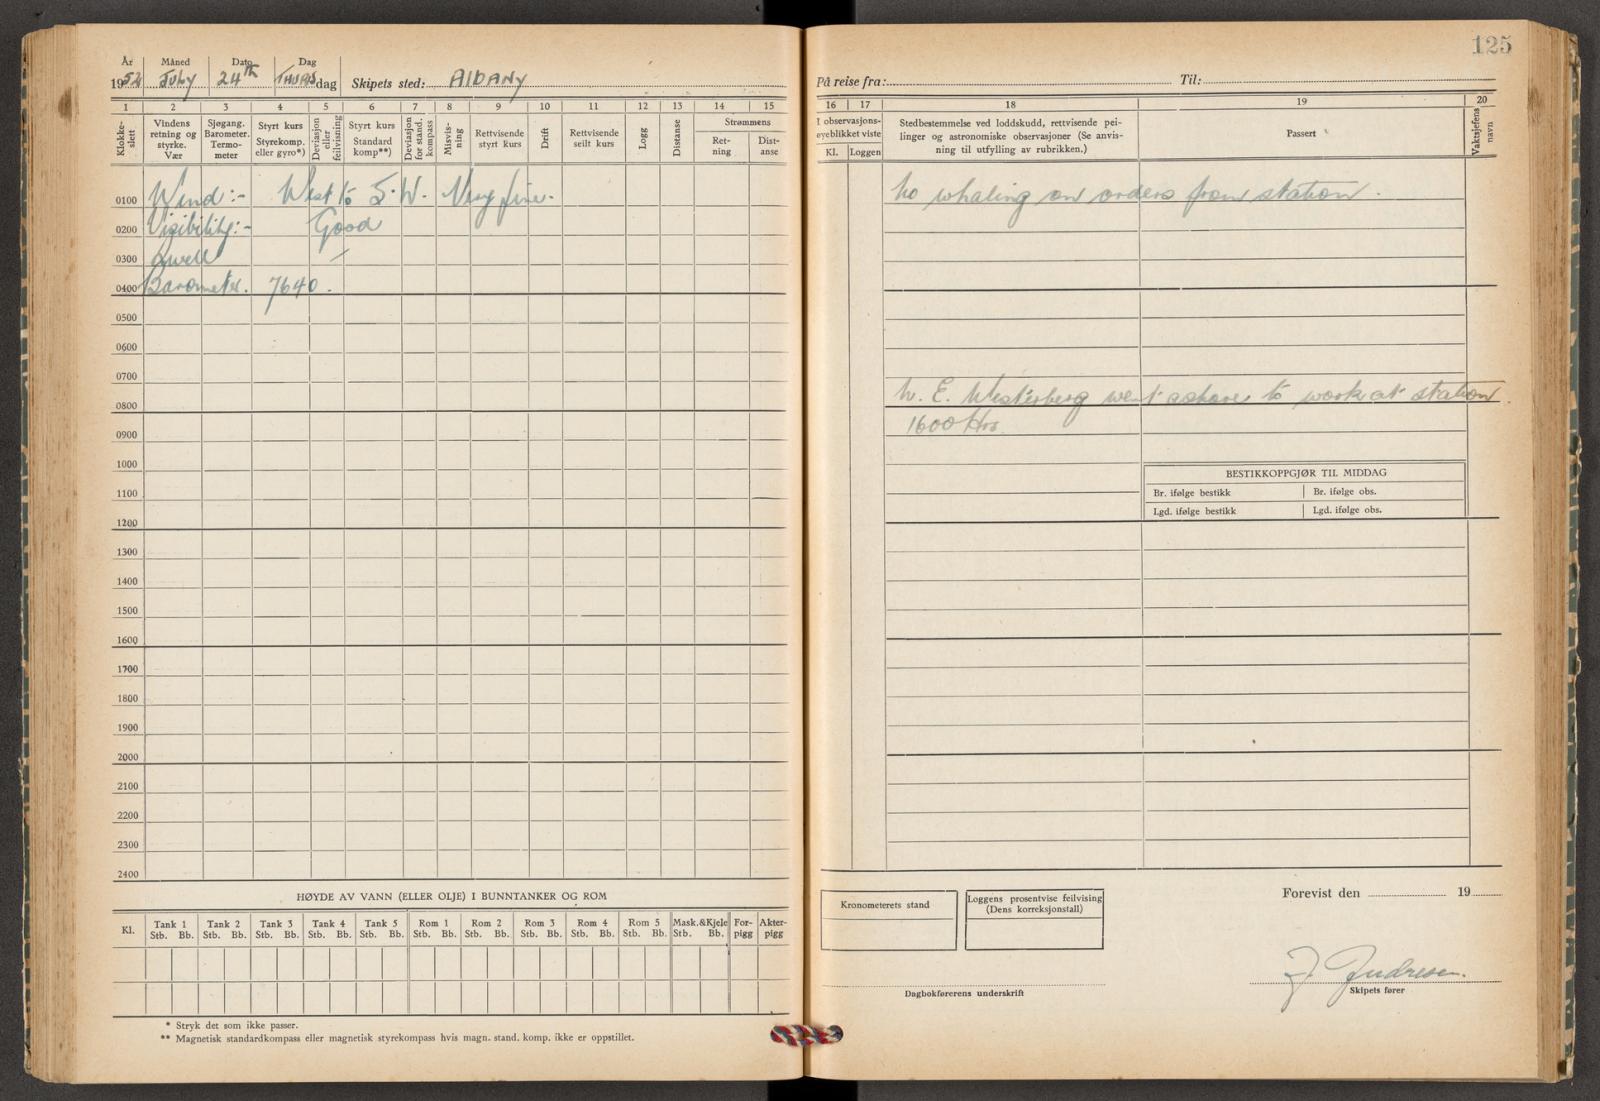 125
År Måned Dato Dag
1952 July 24th THURSdag Skipets sted: AlbANy
På reise fra: Til:
1 2 3 4 5 6 7 8 9 10 11 12 13 14 15
16 17 18 19 20
Klokke-slett
Vindens retning og styrke. Vær
Sjøgang. Barometer. Termo-meter
Styrt kurs Styrekomp. eller gyro*)
Deviasjon eller feilvisning
Styrt kurs Standard komp**)
Deviasjon for stand. kompass
Misvis-ning
Rettvisende styrt kurs
Drift
Rettvisende seilt kurs
Logg
Distanse
Strømmens
Ret-ning
Dist-anse
I observasjons-øyeblikket viste
Kl. Loggen
Stedbestemmelse ved loddskudd, rettvisende pei-
linger og astronomiske observasjoner (Se anvis-
ning til utfylling av rubrikken.)
Passert
Vaktsjefens navn
0100 Wind:- West to S.W. Very fine.
0200 Visibility:- Good
0300 Swell /
0400 Barometer. 7640.
0500
0600
0700
0800
0900
1000
1100
1200
1300
1400
1500
1600
1700
1800
1900
2000
2100
2200
2300
2400
No whaling on orders from station.
W. E. Westerberg went ashore to work at station.
1600 Hrs.
BESTIKKOPPGJØR TIL MIDDAG
Br. ifølge bestikk Br. ifølge obs.
Lgd. ifølge bestikk Lgd. ifølge obs.
HØYDE AV VANN (ELLER OLJE) I BUNNTANKER OG ROM
Kl. Tank 1 Tank 2 Tank 3 Tank 4 Tank 5 Rom 1 Rom 2 Rom 3 Rom 4 Rom 5 Mask.&Kjele For-pigg Akter-pigg
Stb. Bb. Stb. Bb. Stb. Bb. Stb. Bb. Stb. Bb. Stb. Bb. Stb. Bb. Stb. Bb. Stb. Bb. Stb. Bb. Stb. Bb.
* Stryk det som ikke passer.
** Magnetisk standardkompass eller magnetisk styrekompass hvis magn. stand. komp. ikke er oppstillet.
Kronometerets stand
Loggens prosentvise feilvising
(Dens korreksjonstall)
Forevist den 19
Dagbokførerens underskrift
Skipets fører